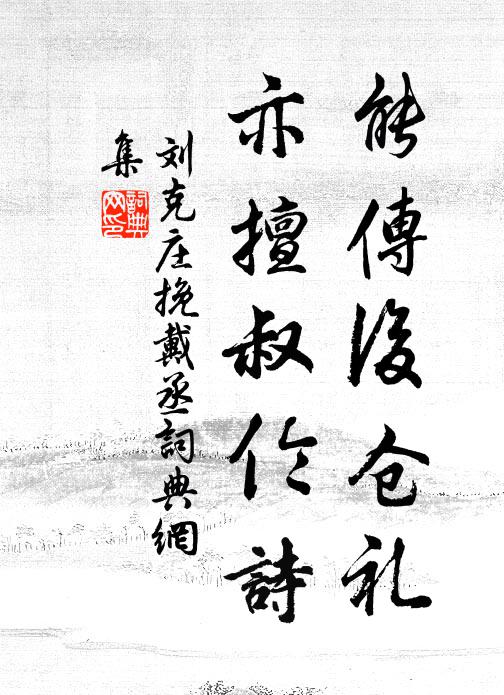 能傳後仓礼
亦擅叔伦詩
刘克庄挽戴丞詞典網
集
詞典
网印